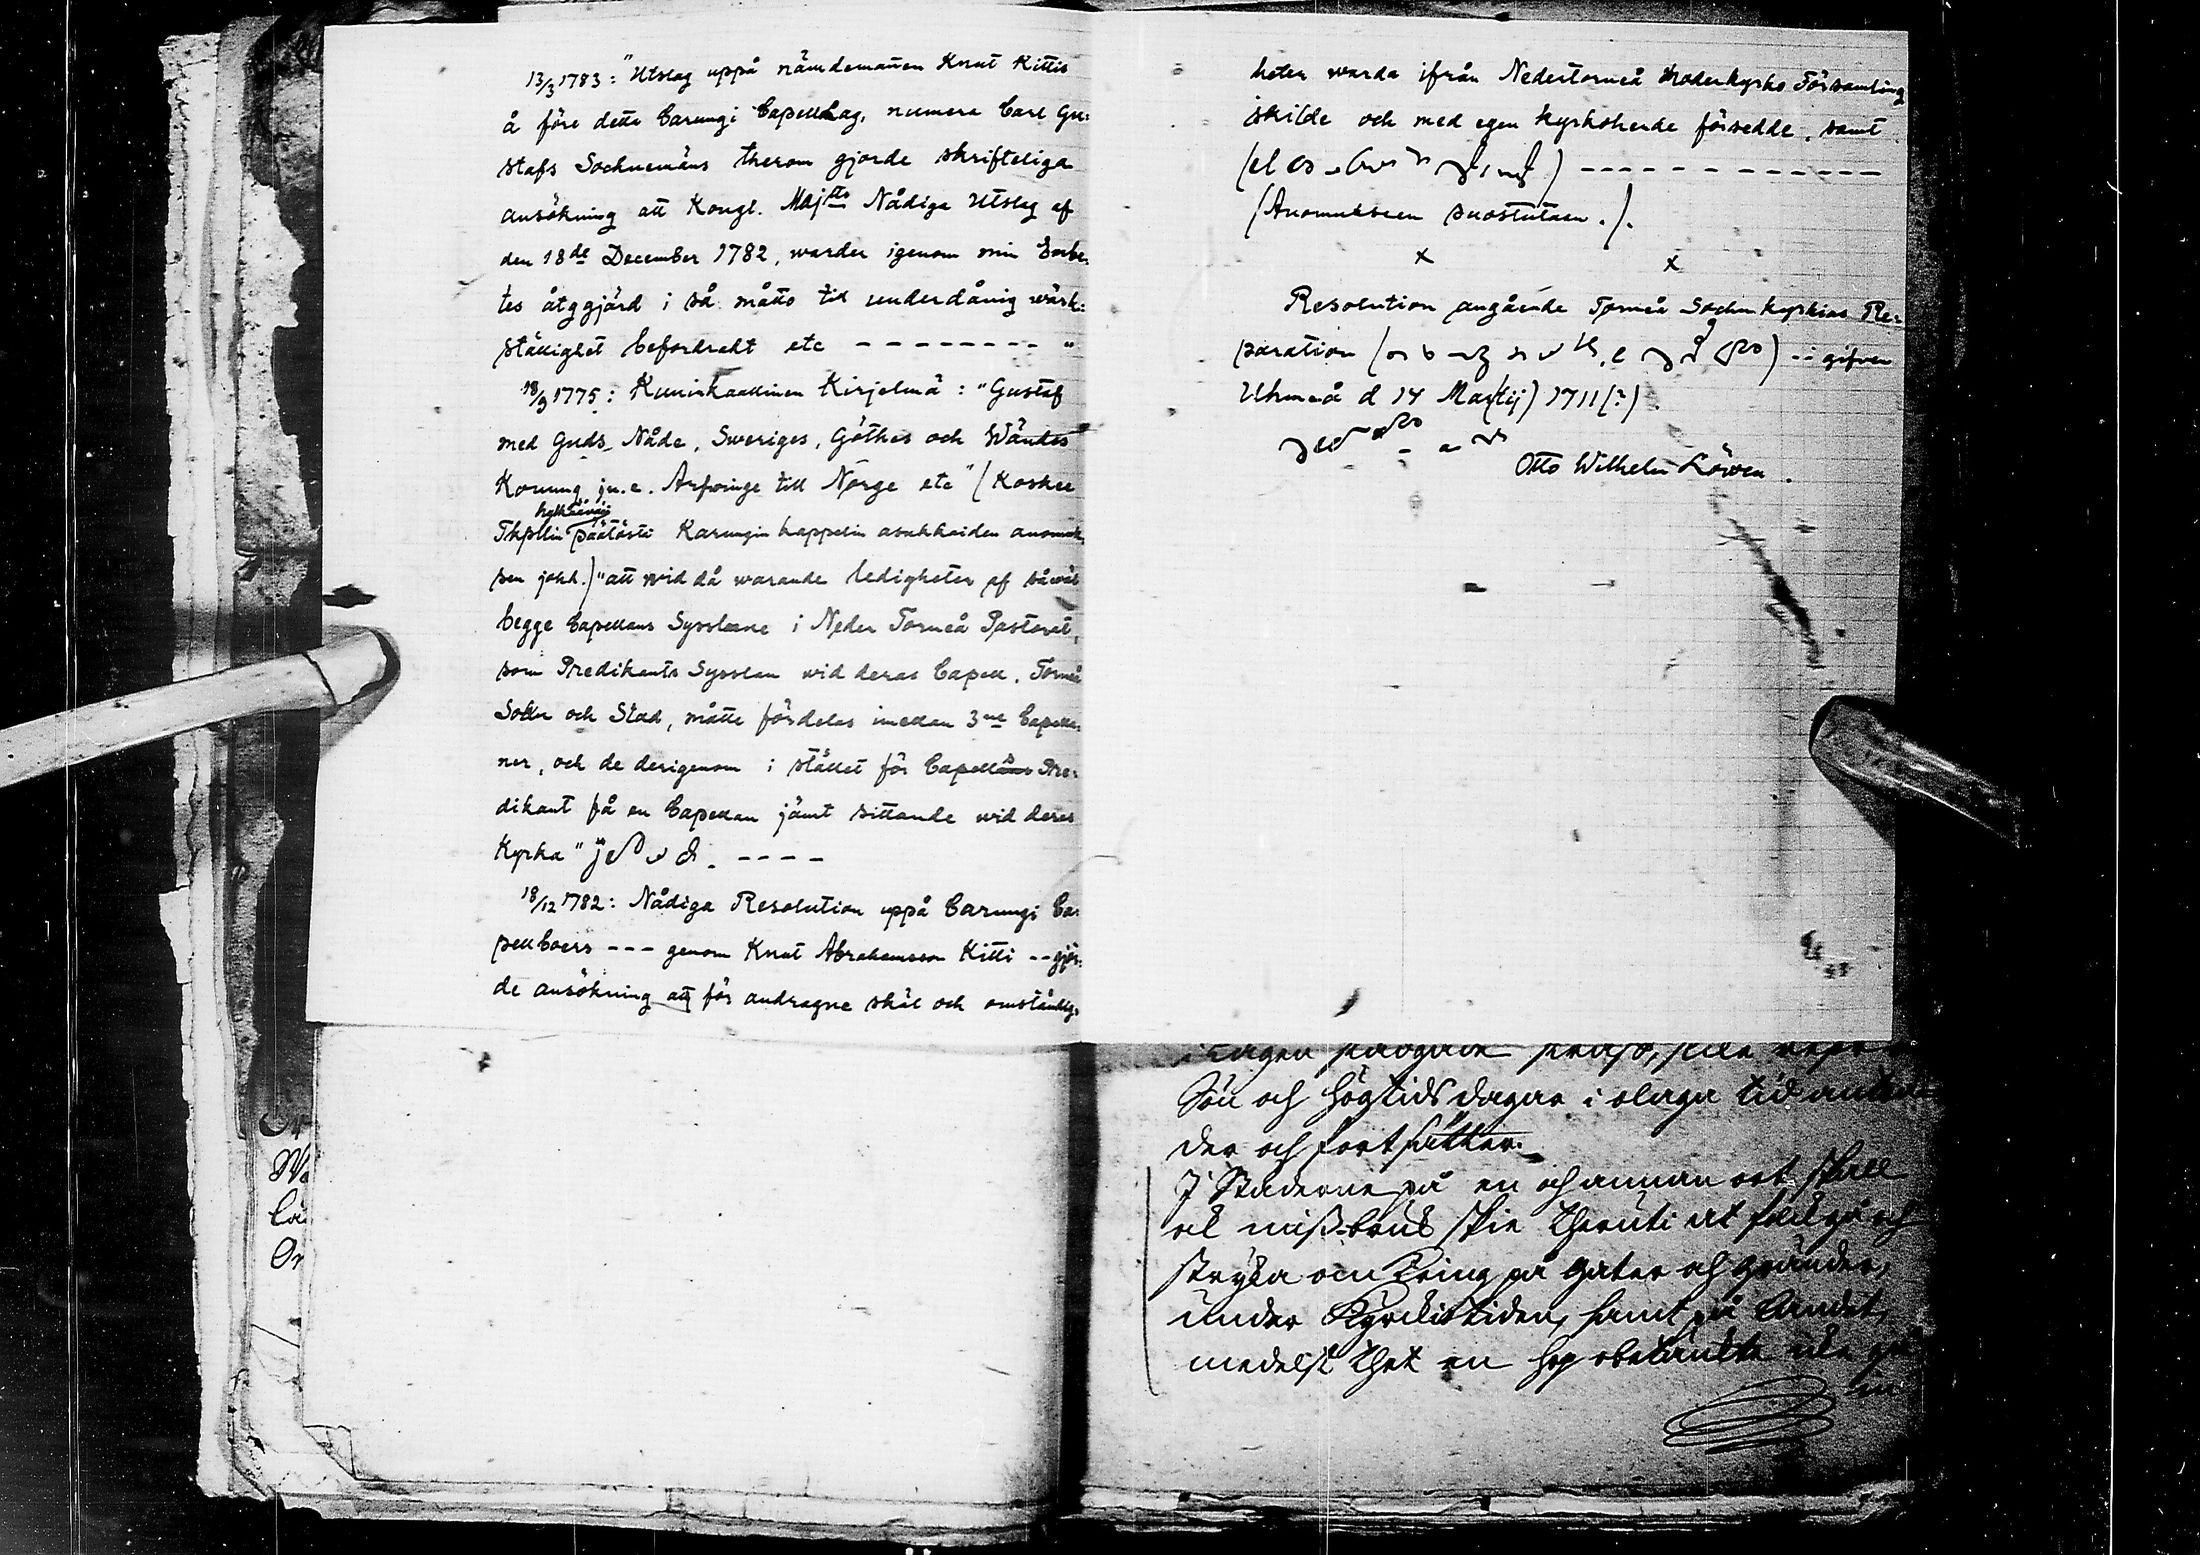 13/3 1783: "Utslag uppå nämdemannen Knut Kittis
å före detta Carungi Capellag, numera Carl Gu:
stafs Sochnemäns therom gjorde skrifteliga
ansökning att Kongl. Maj:tts Nådiga Utslag af
den 18de December 1782, warder igenom min Embe:
tes åtggjärd i så måtto til underdånig wärk:
ställighet befordradt etc - - - - - - - - "
18/9 1775: Kuninkaallinen Kirjelmä: "Gustaf
med Guds Nåde, Sweriges, Göthes och Wändes
Konung jn.e. Arfwinge till Norge etc" (Koskee
hylkäävää
Thpllin päätöstä Karungin kappelin asukkaiden anomuk
sen johd.) "att wid då warande ledigheter af såwäl
begge Capellans Sysslorne i Neder Torneå Pastorat,
som Predikants Sysslan wid deras Capell, Torneå
Sokn och Stad, måtte fördelas imellan 3ne Capella:
ner, och de derigenom i stället för Capellans Pre:
dikant få en Capellan jämt sittande wid deras
Kyrka" - - - -
18/12 1782: Nådiga Resolution uppå Carungi Ca:
pellboers - - - genom Knut Abrahamsson Kitti - - gjor:
de ansökning att för andragne skäl och omständig:
heter warda ifrån Nedertorneå Moderkyrko Församling
skilde och med egen kyrkoherde försedde, samt
- - - - - - - - - - - -
(Anomukseen suostutaan.).
x x
Resolution angående Torneå Sochn kyrkias Re:
paration - - gifwen
Uhmeå d 14 Mar(tij) 1711(?).
Otto Wilhelm Löwen.
Sön och Högtids dagar i olaga tid
der och fortsätter.
I Städerne på en och annan ort skall
et missbruk skie theruti at folk gå och
stryka om kring på gator och gränder,
under Kyrkiotiden, samt på Landet,
medelst thet en hop obetänkte